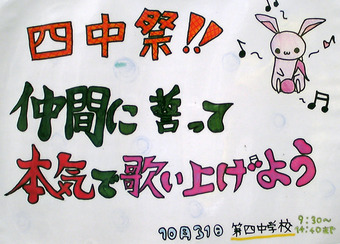 四中祭!!
仲間に誓って
本気で歌い上げよう
10月31日 第四中学校 9:30〜
14:40まで